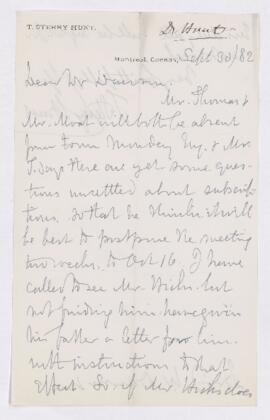 T. STERRY HUNT.
Dr. Hunt
Montreal, Canada, Sept 30/82
Dear Dr Dawson.
Mr. Thomas &
Mr. Moat will both be absent
from town Monday Eng. & Mr.
T. says there are yet some ques-
tions unsettled about subscrip-
tions, so that he thinks it will
be best to postpone the meeting
two weeks, to Oct 16. I have
called to see Mr. Hicks but
not finding him, have given
his father a letter for him
with instructions to that
effect. So if Mr Hicks does